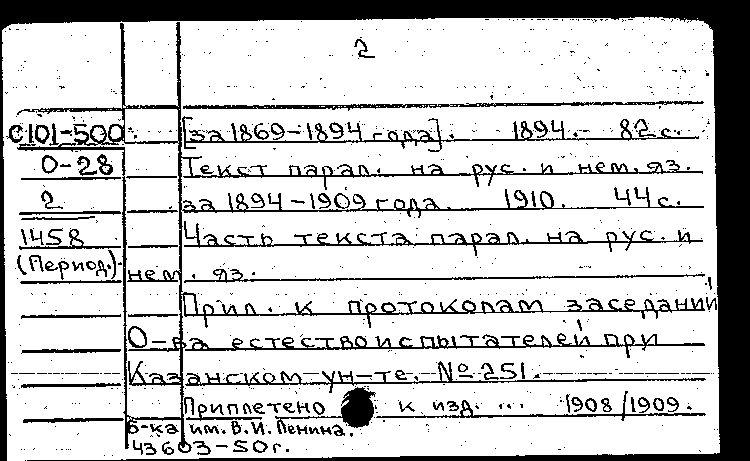 2
С101-500 [за 1869-1894 года]. 1894.- 82 с.
О-28 Текст парал. на рус. и нем. яз.
2 за 1894-1909 года. 1910. 44 с.
1458 Часть текста парал. на рус. и
(Период.) нем. яз.
Прил. к протоколам заседаний
О-ва естествоиспытателей при
Казанском ун-те. № 251.
Приплетено к изд. ... 1908/1909.
б-ка им. В.И. Ленина.
43603-50г.